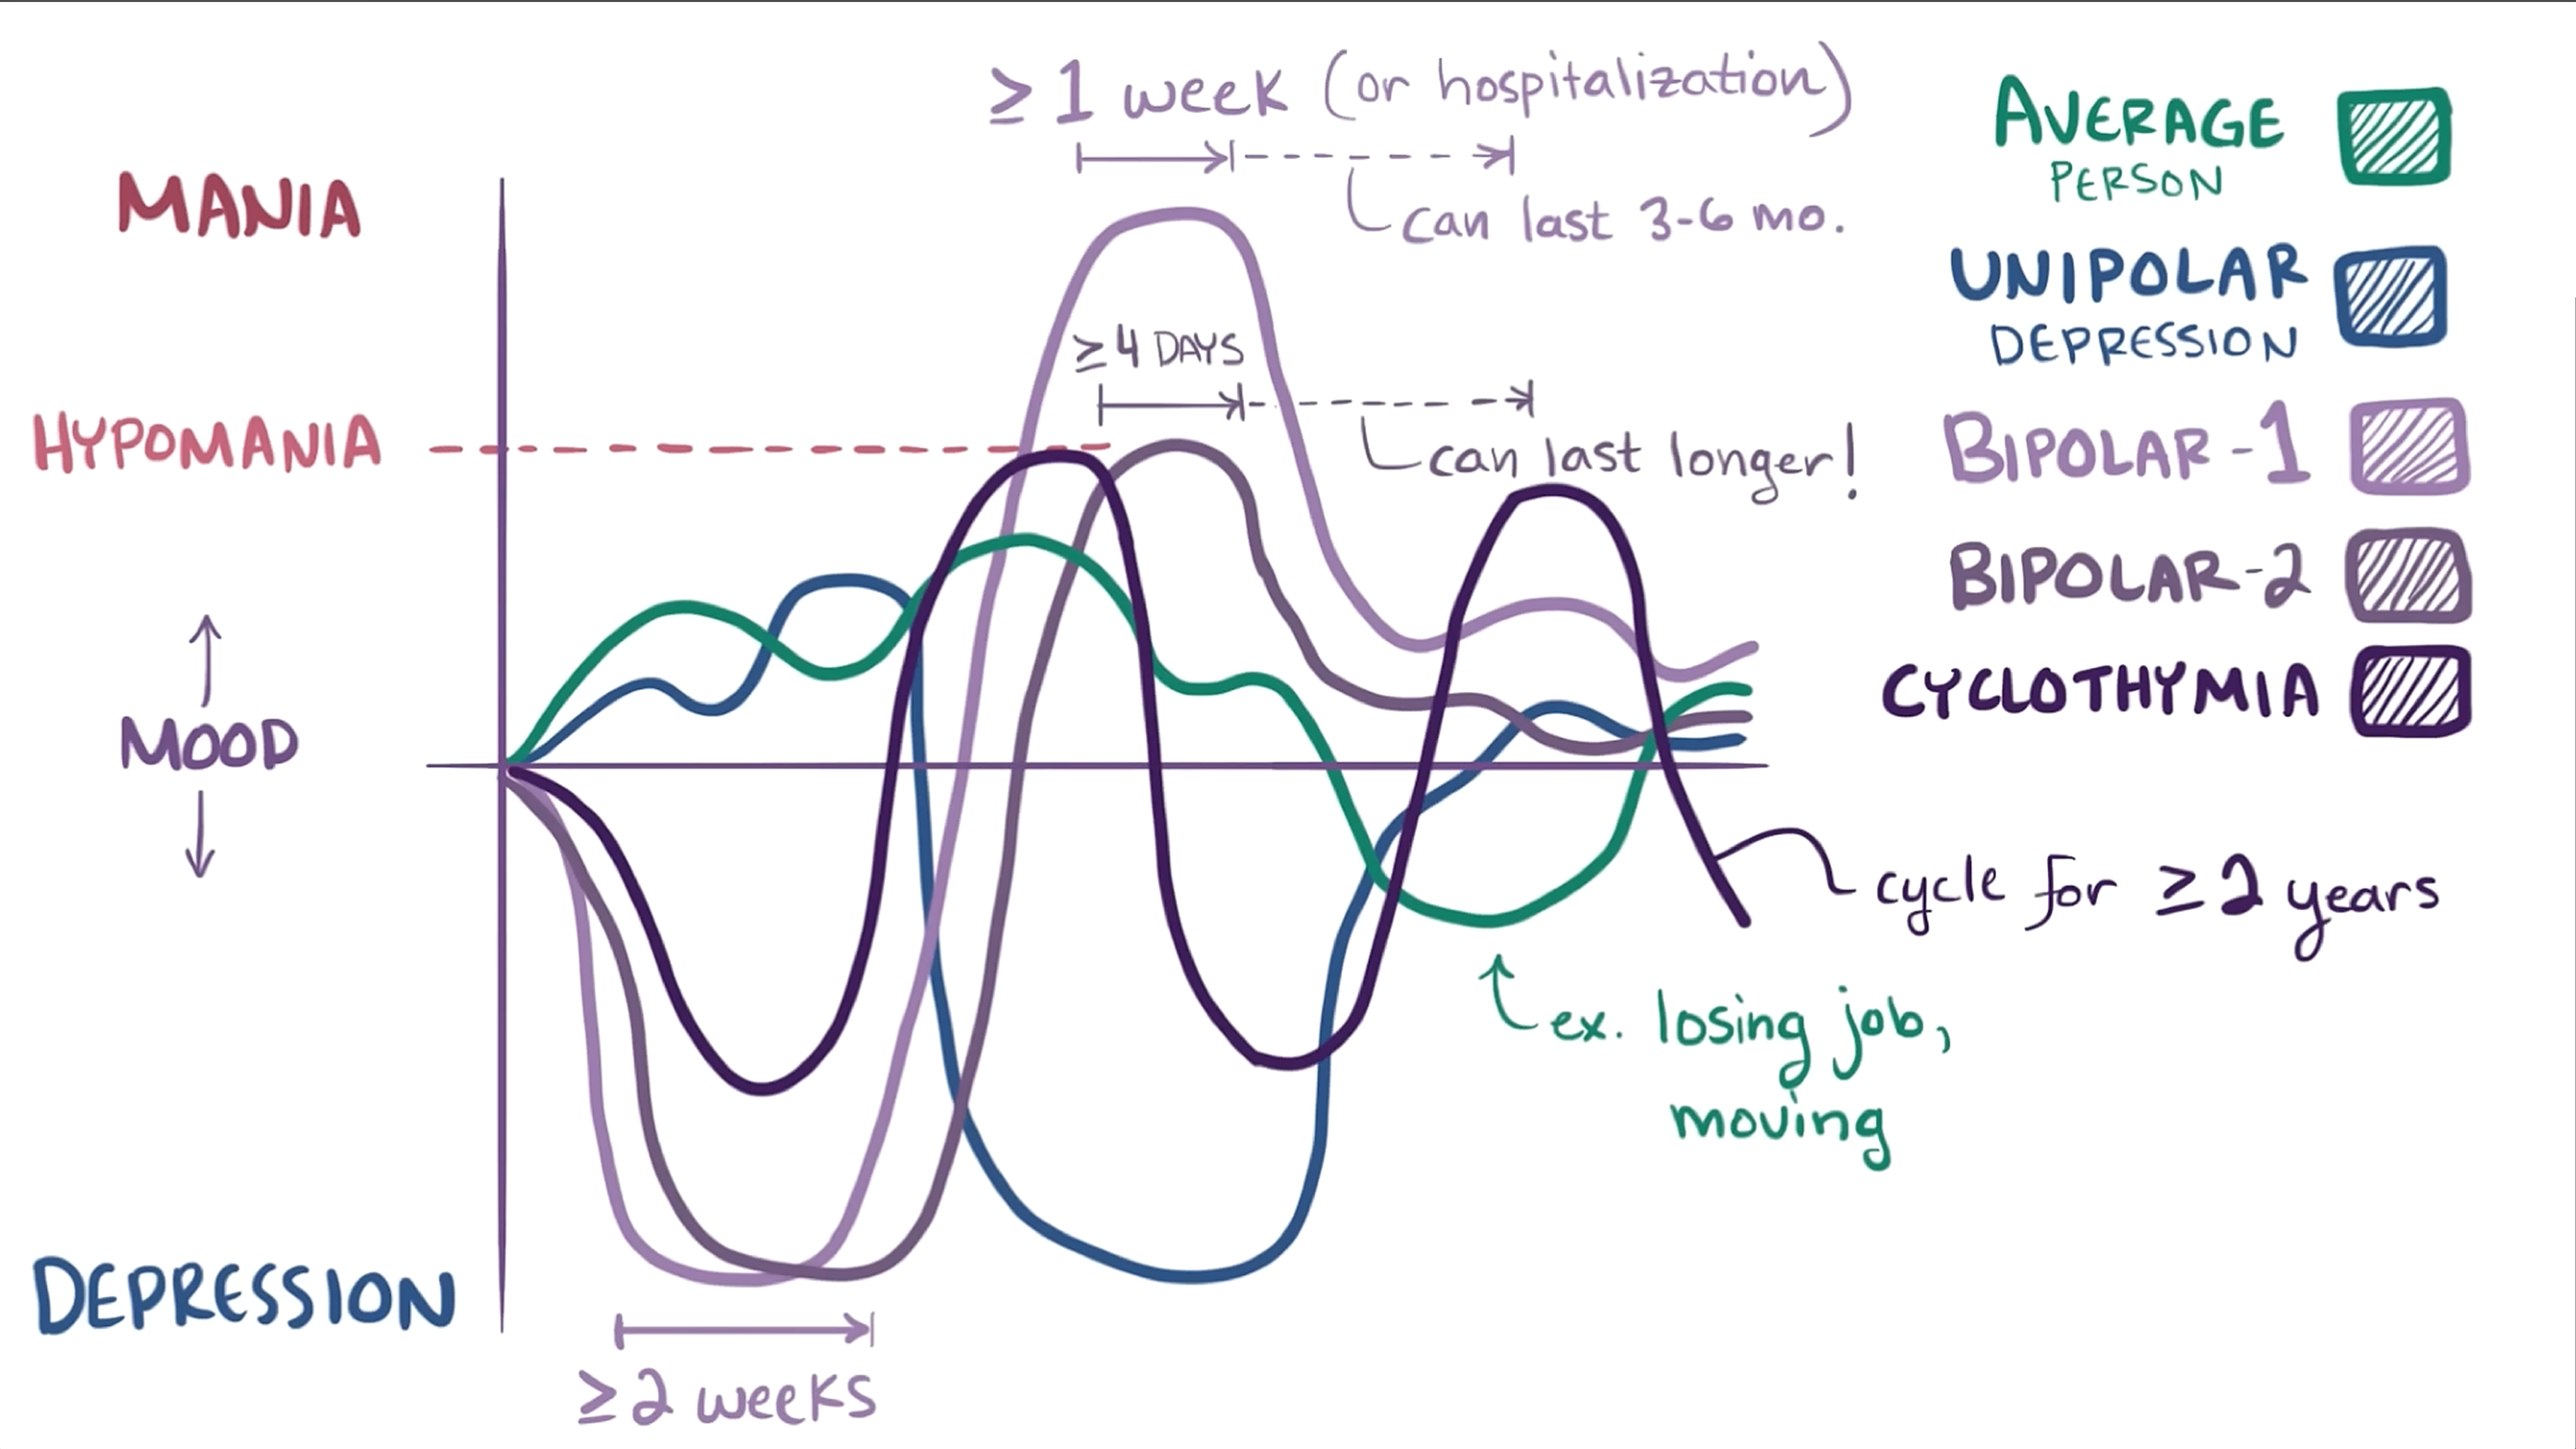 ≥ 1 week (or hospitalization)
can last 3-6 mo.
MANIA
≥4 DAYS
HYPOMANIA
can last longer!
MOOD
DEPRESSION
≥2 weeks
AVERAGE
PERSON
UNIPOLAR
DEPRESSION
BIPOLAR-1
BIPOLAR-2
CYCLOTHYMIA
cycle for ≥2 years
ex. losing job,
moving